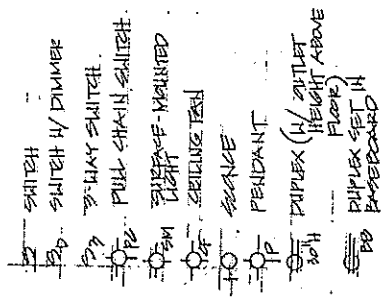 S SWITCH
SD SWITCH W/ DIMMER
S3 3-WAY SWITCH
PC PULL CHAIN SWITCH
SM SURFACE-MOUNTED
LIGHT
CF CEILING FAN
SCONCE
P PENDANT
30"H DUPLEX (W/ OUTLET
HEIGHT ABOVE
FLOOR)
BB DUPLEX SET IN
BASEBOARD